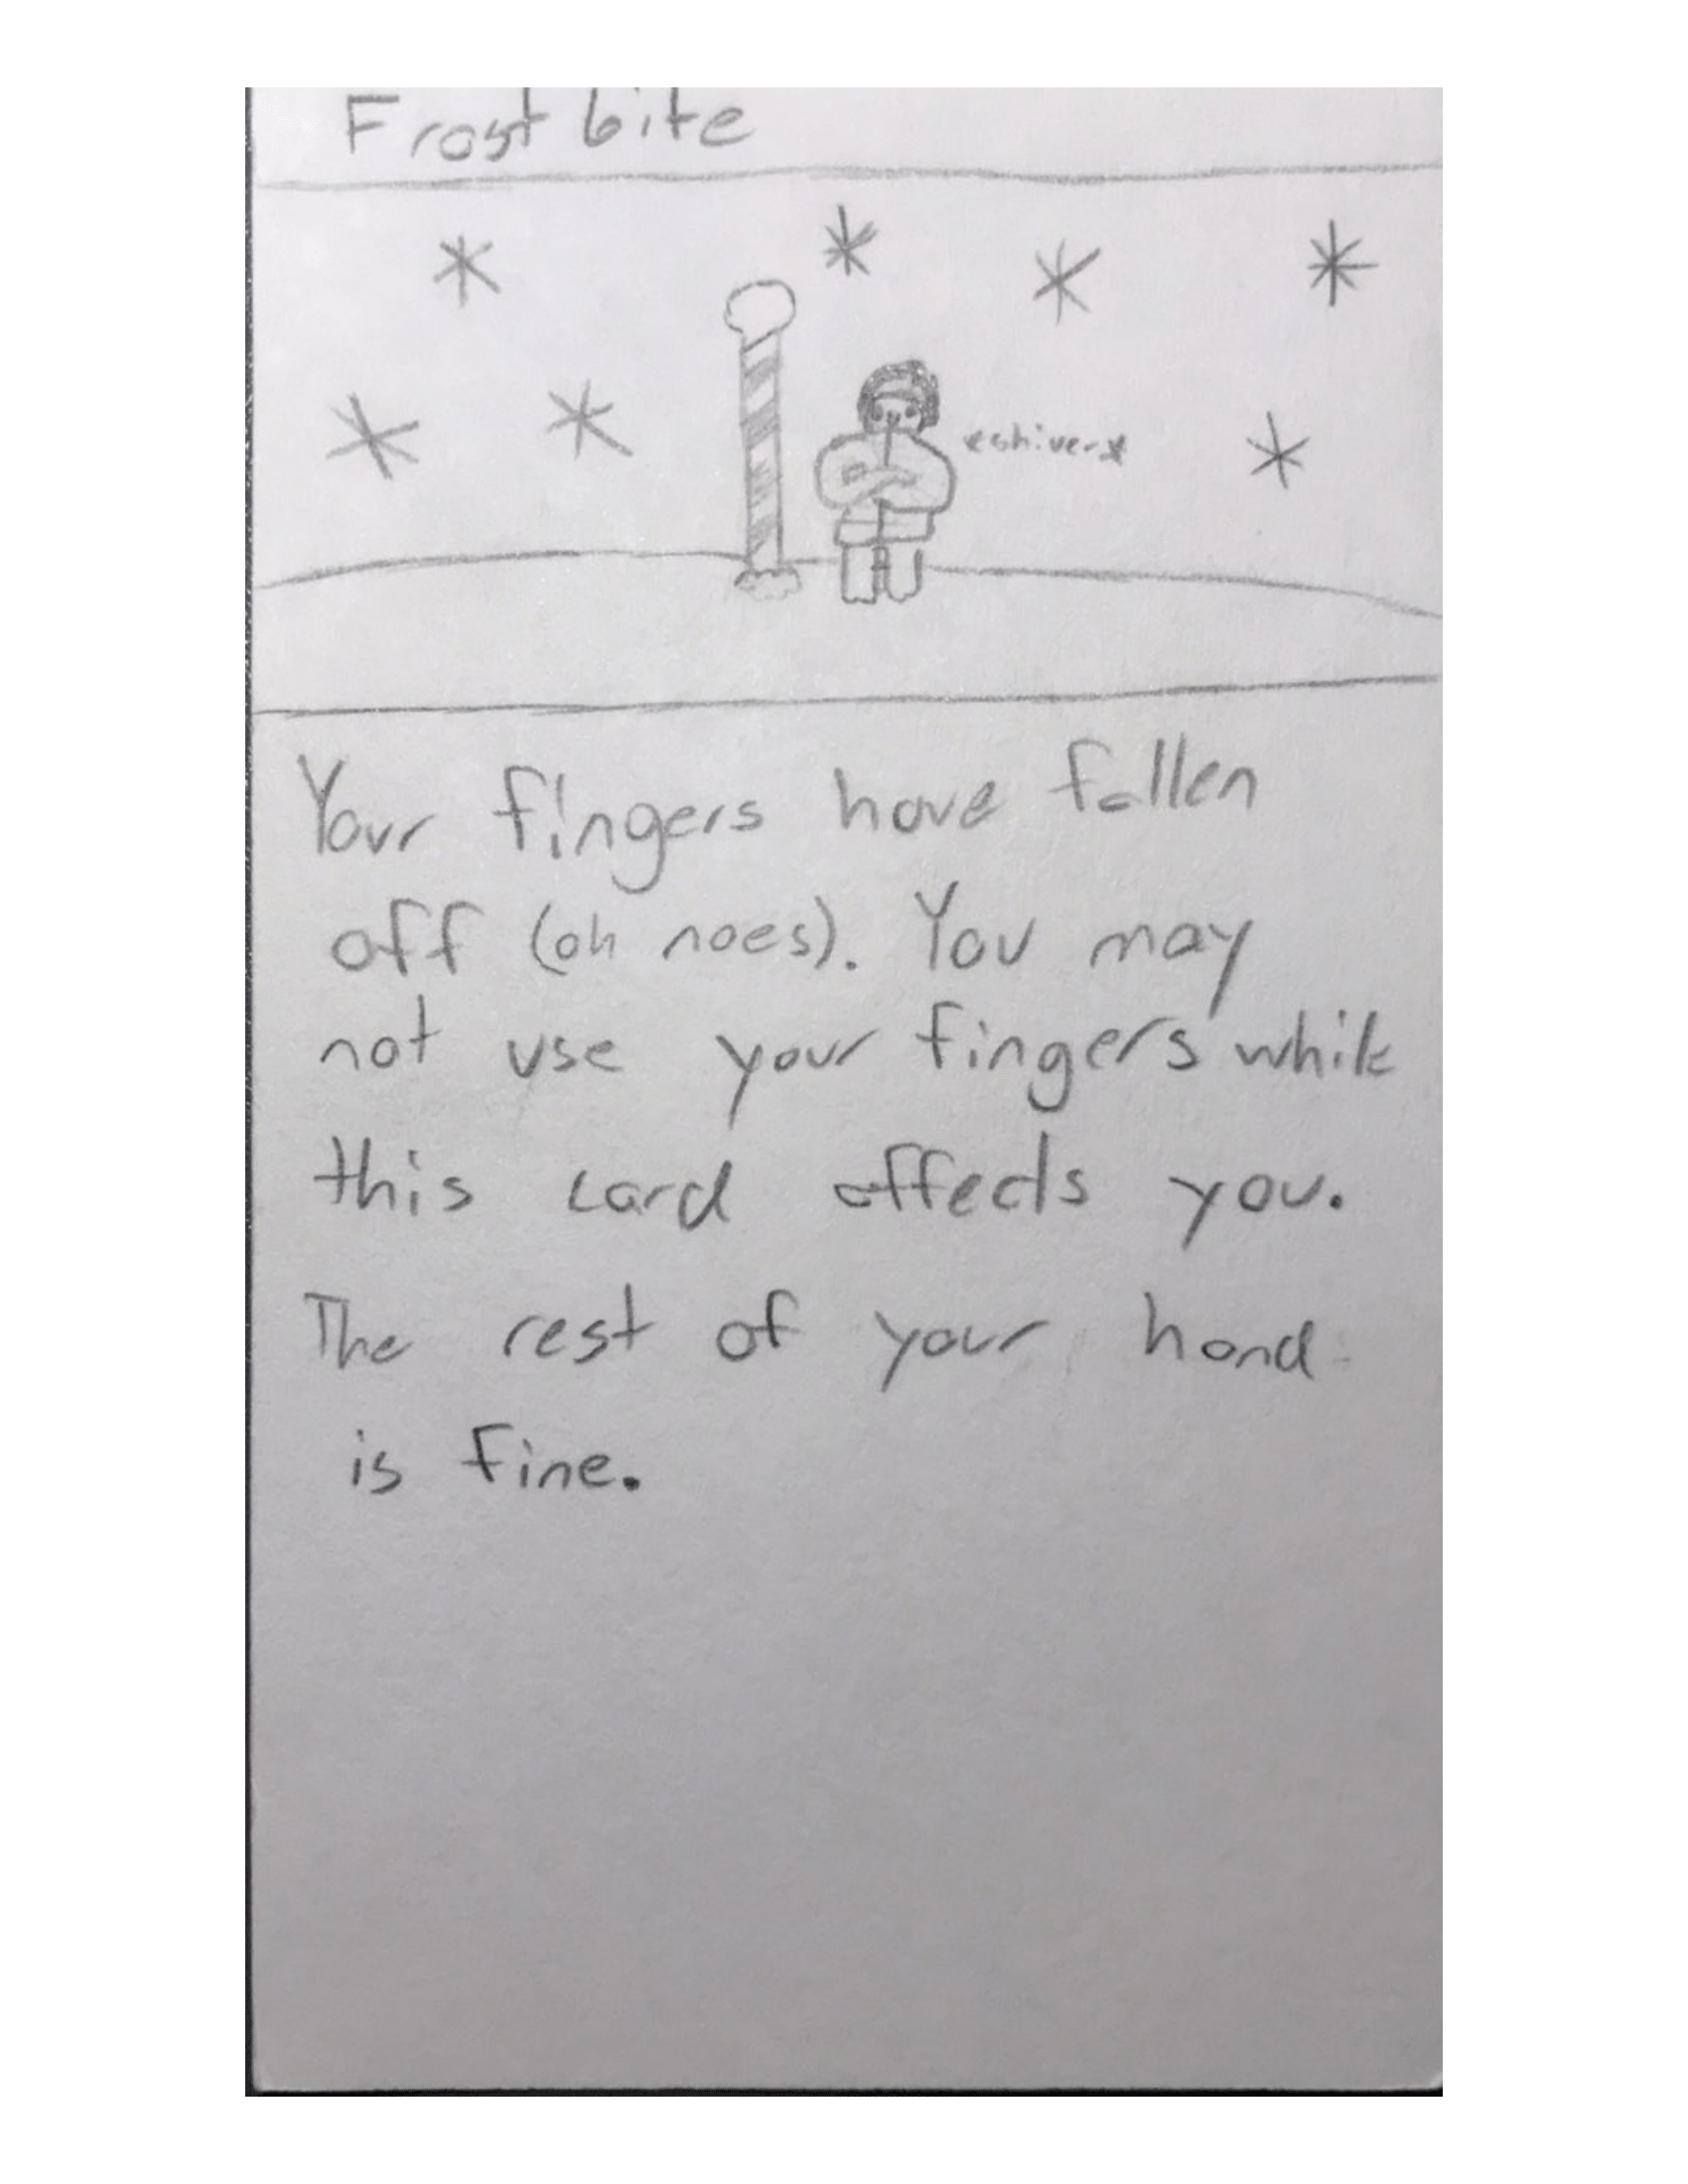 Frost bite
*shiver*
Your fingers have fallen
off (oh noes). You may
not use your fingers while
this card affects you.
The rest of your hand
is fine.